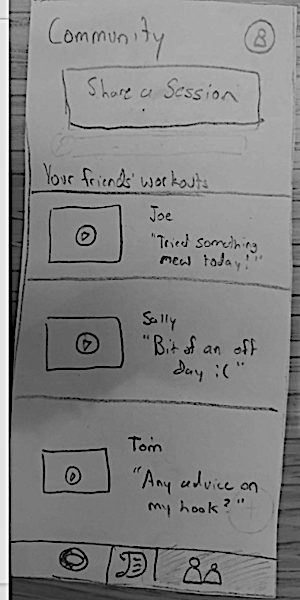 Community
Share a Session
Your friends' workouts
Joe
"Tried something
new today!"
Sally
"Bit of an off
day :( "
Tom
"Any advice on
my hook?"